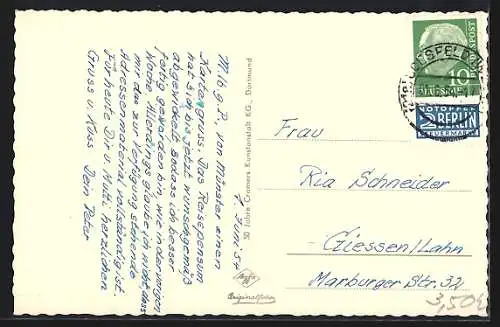 7. Juni 54
M. lb. g. P. von Münster einen
Kartengruss. Das Reisepensum
hat sich bis jetzt wunschgemäß
abgewickelt sodass ich besser
fertig geworden bin, wie in der vorigen
Woche. Allerdings glaube ich nicht, dass
mir das zur Verfügung stehende
Adressenmaterial vollständig ist.
Für heute Dir u. Mutti herzlichen
Gruss u. Kuss Dein Peter
50 Jahre Cramers Kunstanstalt KG., Dortmund
Agfa
Originalfoto
BUNDESPOST
10
NOTOPFER
2 BERLIN
STEUERMARKE
Frau
Ria Schneider
Giessen/Lahn
Marburger Str. 32
3,50€